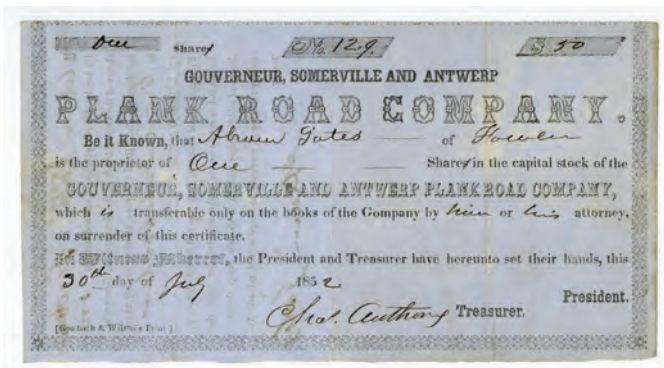 One Share No. 129. $ 50
GOUVERNEUR, SOMERVILLE AND ANTWERP
PLANK ROAD COMPANY.
Be it Known, that Abram Yates of Fowler
is the proprietor of One Share in the capital stock of the
GOUVERNEUR, SOMERVILLE AND ANTWERP PLANK ROAD COMPANY,
which is transferable only on the books of the Company by him or his attorney,
on surrender of this certificate.
In Witness Whereof, the President and Treasurer have hereunto set their hands, this
30th day of July 1852
President.
Chas. Anthony Treasurer.
Print.]